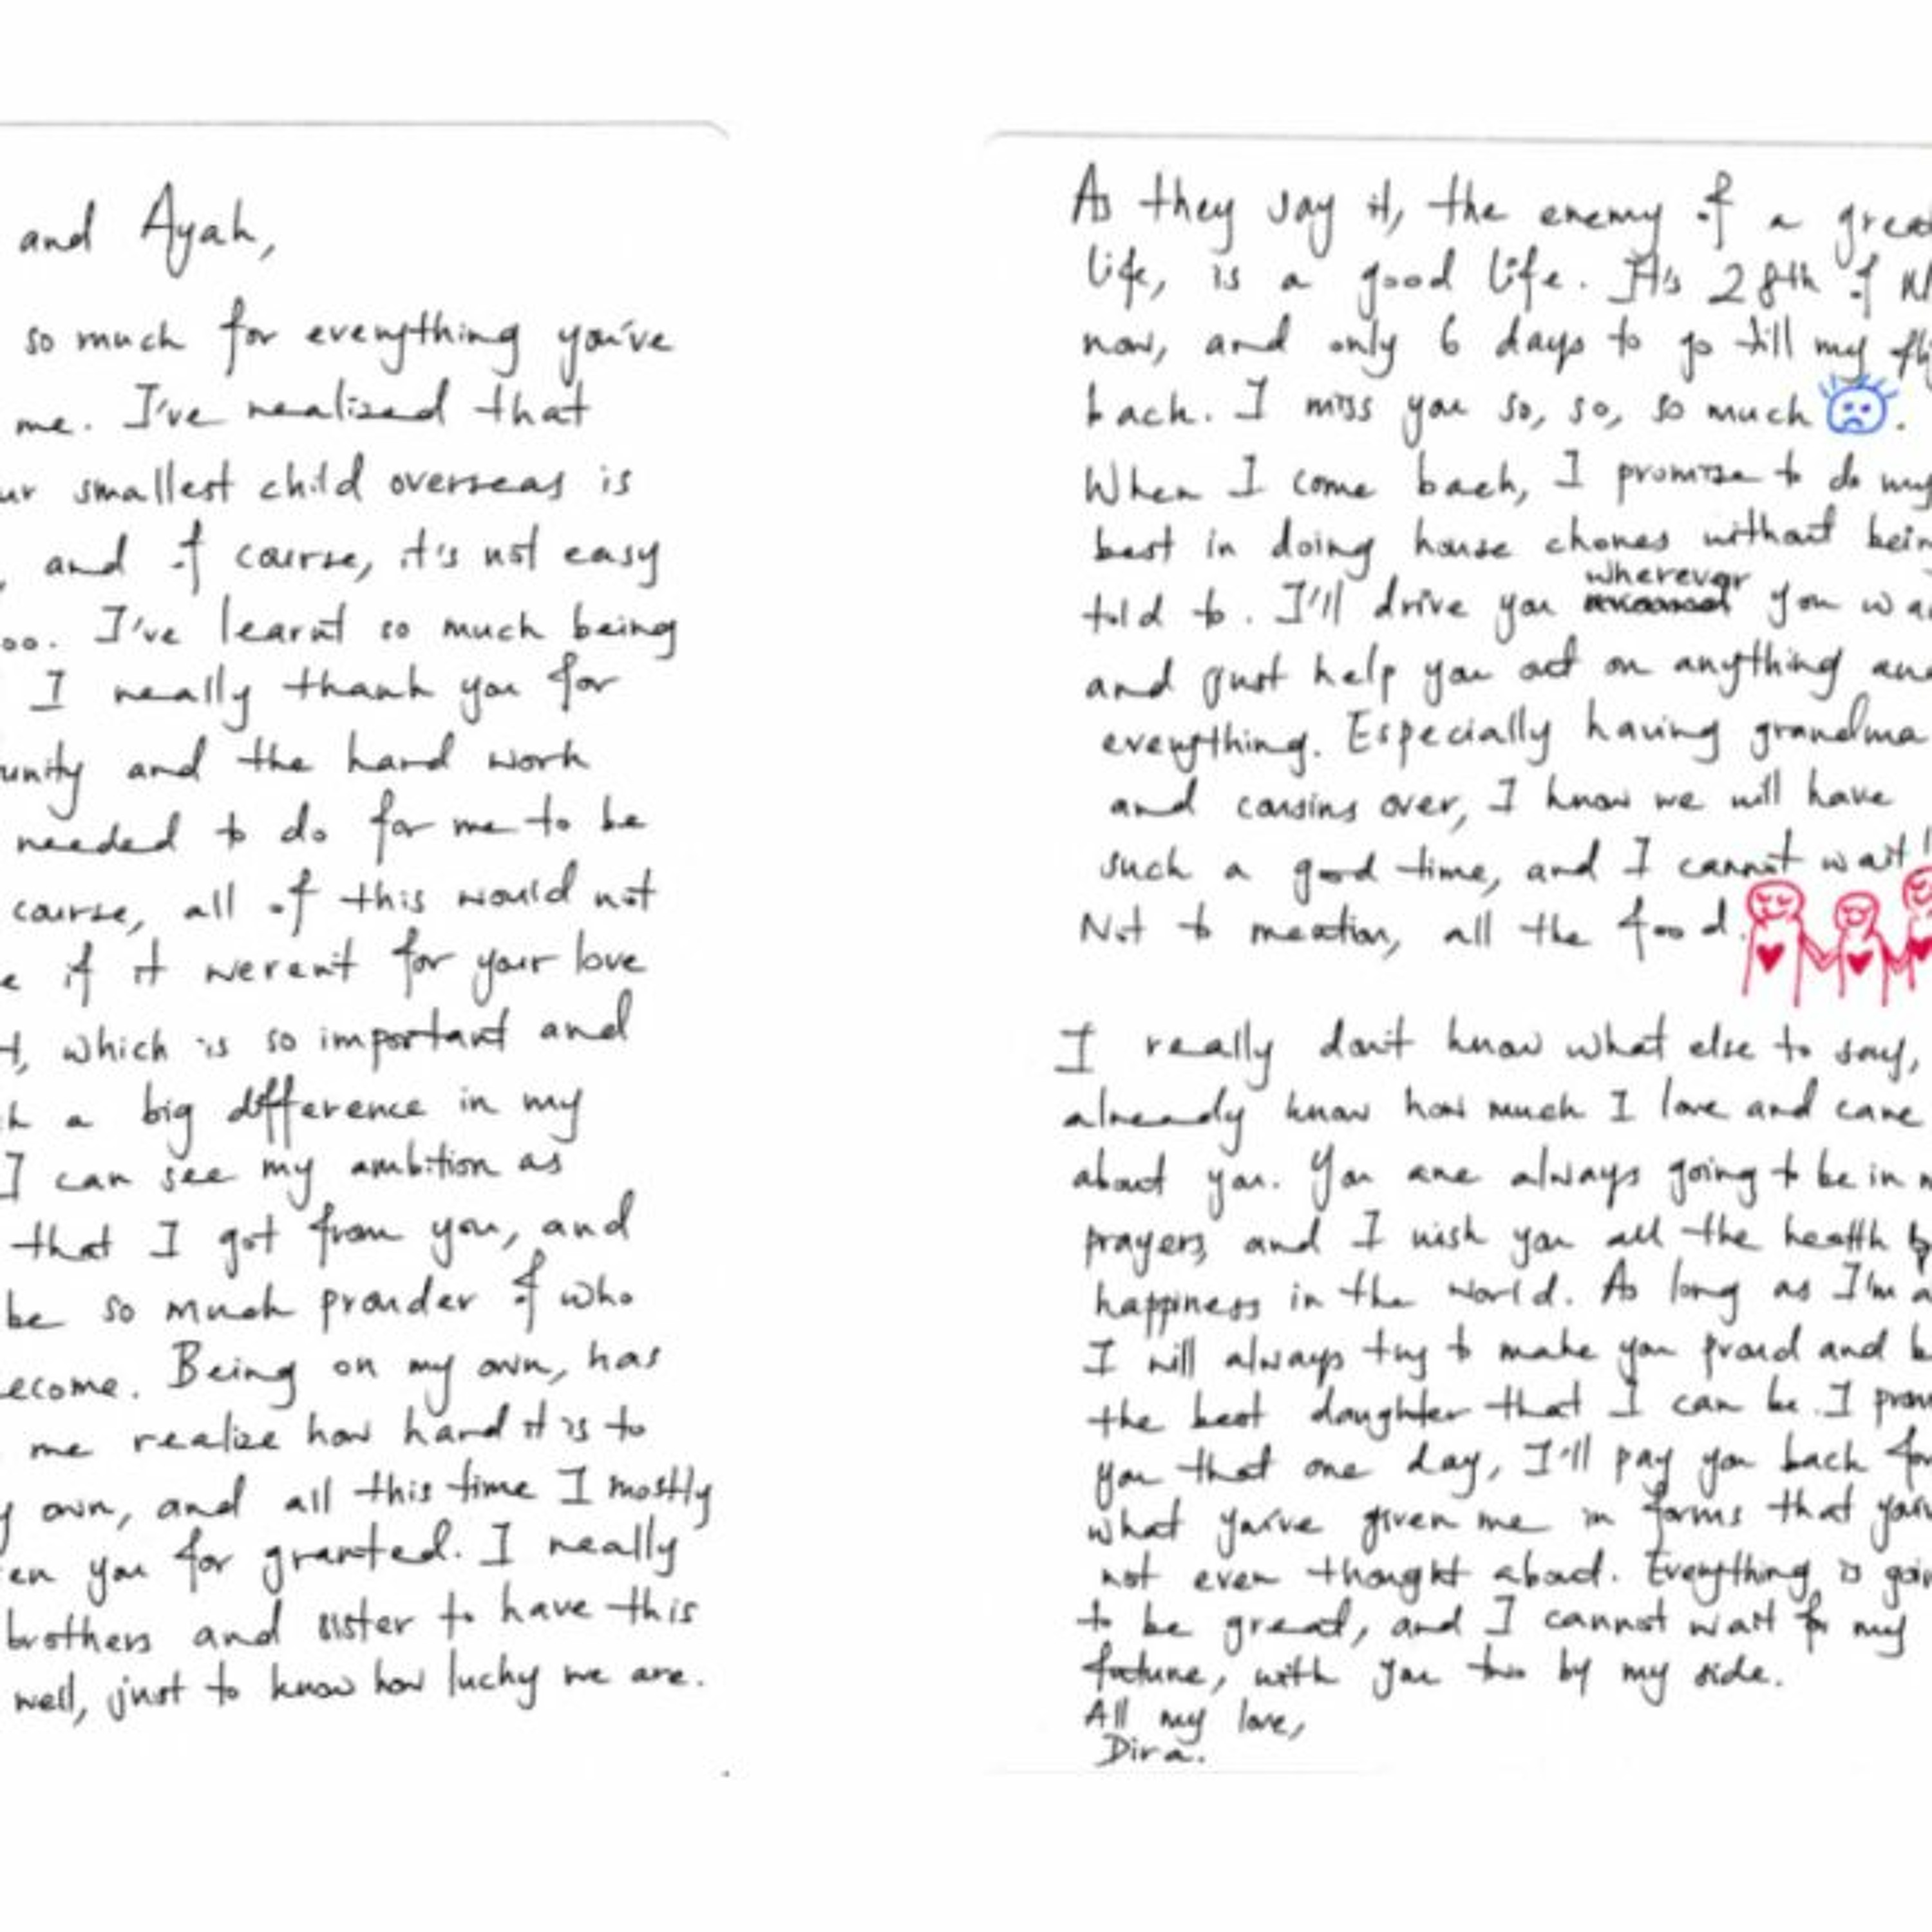 and Ayah,
so much for everything you've
me. I've realized that
ur smallest child overseas is
, and of course, it's not easy
oo. I've learnt so much being
I really thank you for
unity and the hard work
needed to do for me to be
course, all of this would not
e if it weren't for your love
t, which is so important and
h a big difference in my
I can see my ambition as
that I got from you, and
be so much prouder of who
ecome. Being on my own, has
me realize how hard it is to
y own, and all this time I mostly
en you for granted. I really
brothers and sister to have this
well, just to know how luchy we are.
As they say it, the enemy of a grea
life, is a good life. It's 28th of
now, and only 6 days to go till my
back. I miss you so, so, so much.
When I come back, I promise to do my
best in doing house chores without bein
told to. I'll drive you wherever you wa
and just help you out on anything an
everything. Especially having grandma
and cousins over, I know we will have
such a good time, and I cannot wait!
Not to mention, all the food.
I really don't know what else to say,
already know how much I love and care
about you. You are always going to be in
prayers, and I wish you all the health
happiness in the world. As long as I'm a
I will always try to make you proud and b
the best daughter that I can be. I prom
you that one day, I'll pay you back for
what you've given me in forms that you
not even thought about. Everything is goin
to be great, and I cannot wait for my
fortune, with you two by my side.
All my love,
Dira.